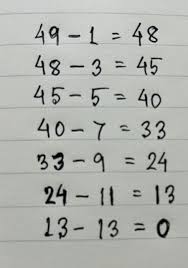 49 - 1 = 48
48 - 3 = 45
45 - 5 = 40
40 - 7 = 33
33 - 9 = 24
24 - 11 = 13
13 - 13 = 0